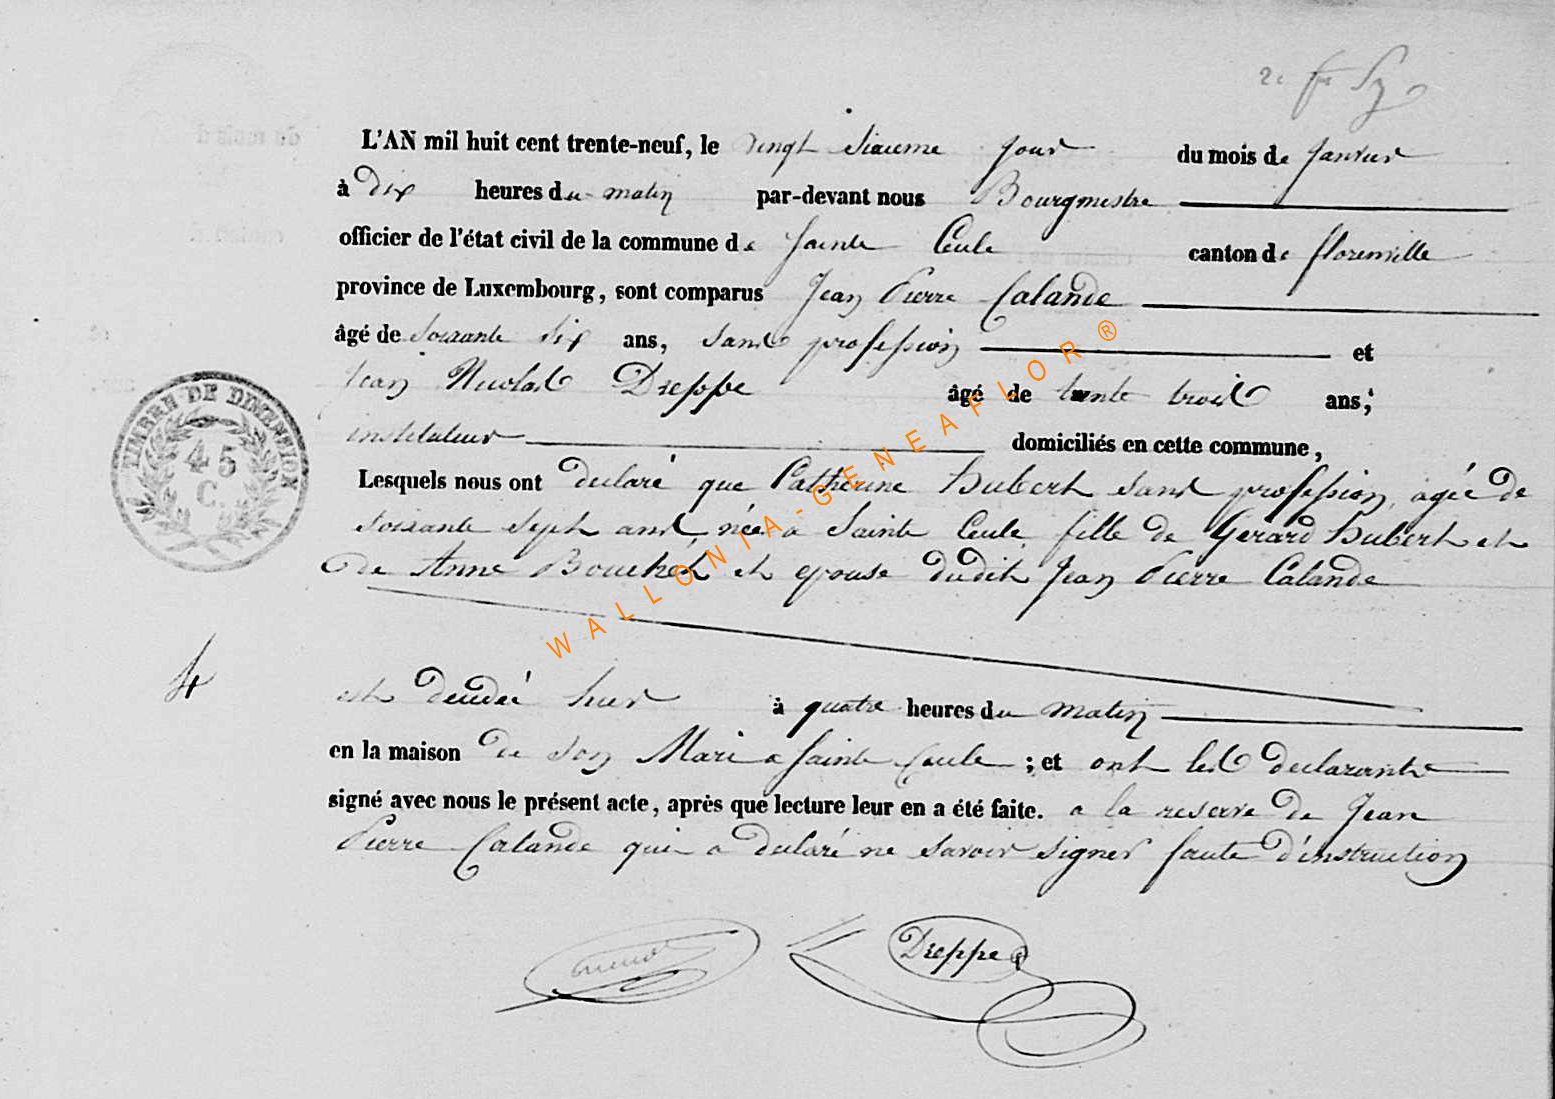 L'AN mil huit cent trente-neuf, le vingt sixieme jour du mois de janvier
à dix heures du matin par-devant nous Bourgmestre
officier de l'état civil de la commune de Sainte Cecile canton de florenville
province de Luxembourg, sont comparus Jean Pierre Calande
âgé de soixante six ans, sans profession et
Jean Nicolas Dreppe âgé de trente trois ans,
instituteur domiciliés en cette commune,
TIMBRE DE DIMENSION
45
C.
Lesquels nous ont declaré que Catherine Hubert sans profession, agée de
soixante sept ans née a Sainte Cecile fille de Gerard Hubert et
de Anne et epouse dudit Jean Pierre Calande
WALLONIA-GENEAFLOR®
4
est decedée hier à quatre heures du matin
en la maison de son Mari a Sainte Cecile ; et ont les declarants
signé avec nous le présent acte, après que lecture leur en a été faite. a la reserve de Jean
Pierre Calande qui a declaré ne savoir signer faute d'instruction
Dreppe